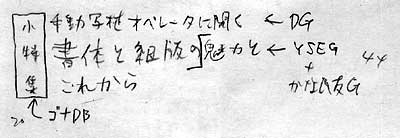 小特集
手動写植オペレータに聞く ← DG
書体と組版の「魅力と ← YSEG
これから
+
かな民友G
44
20 ゴナDB